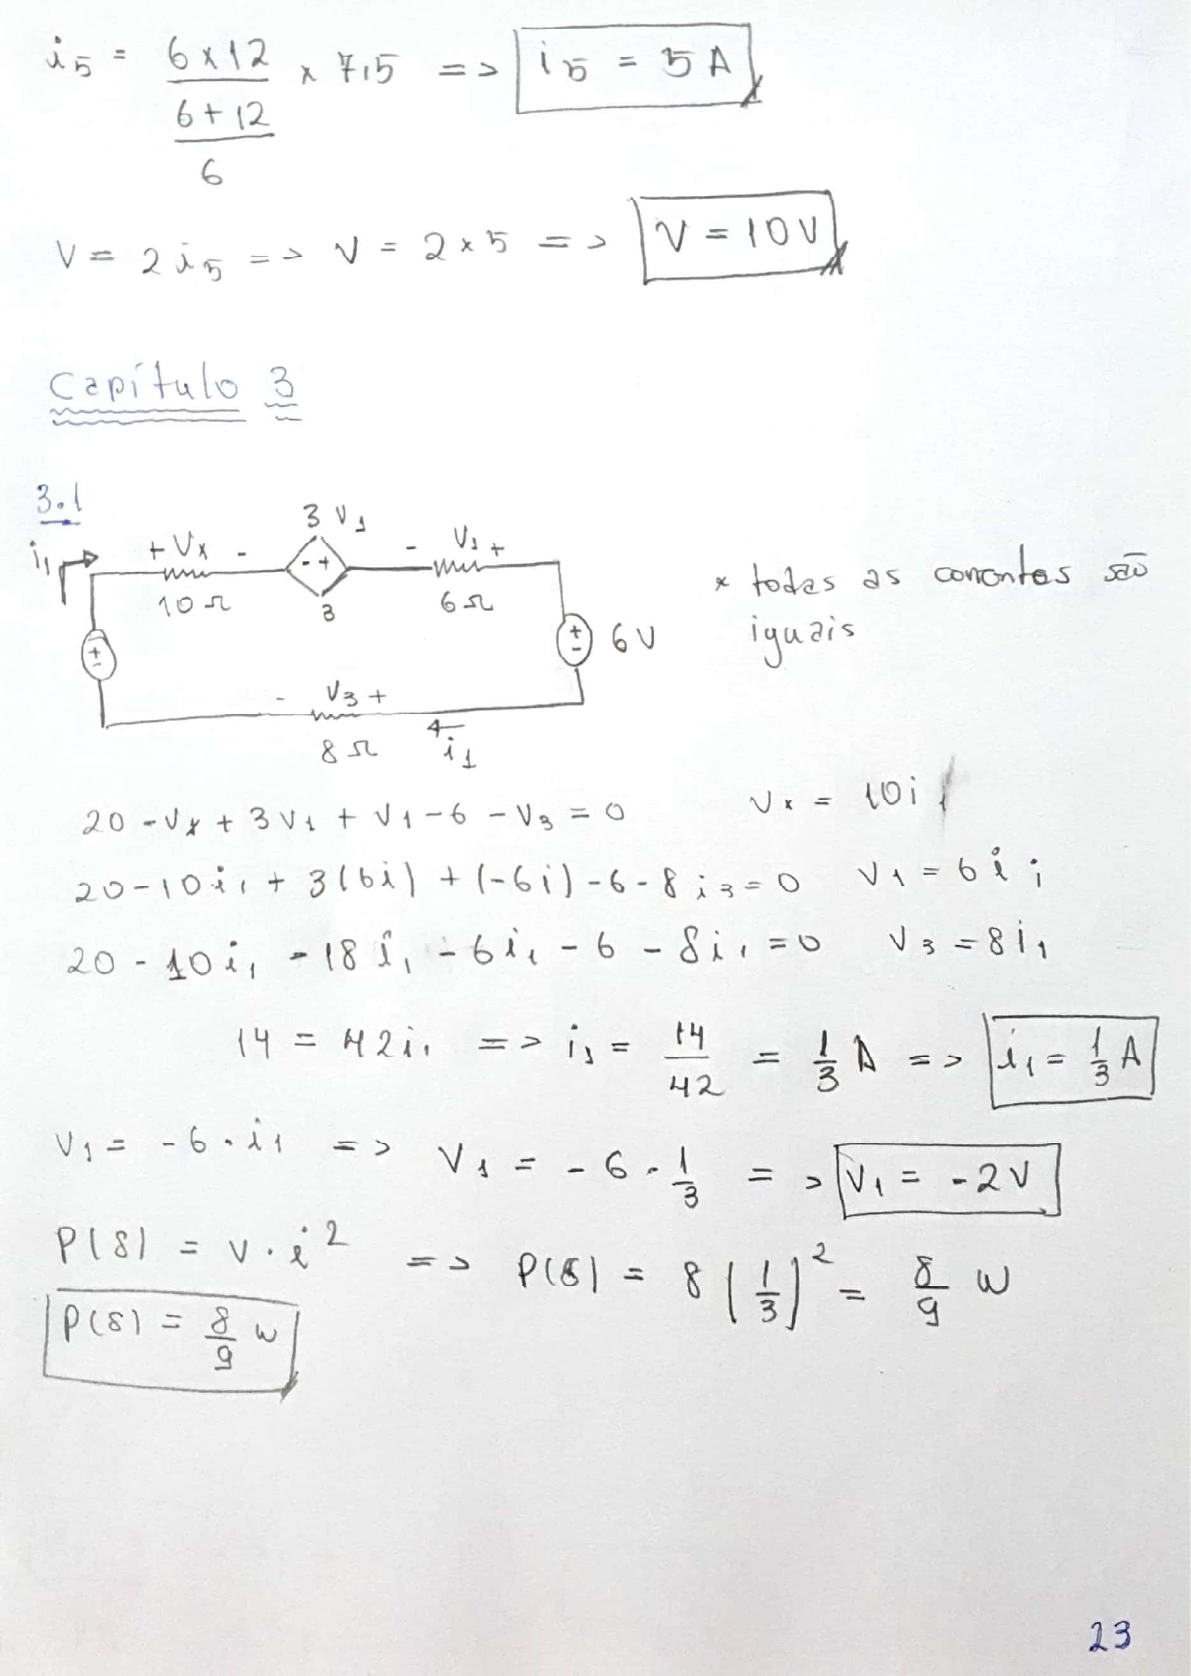 i5 = 6x12/6+12/6 x 7,5 => i5 = 5 A
V = 2 i5 => V = 2 x 5 => V = 10 V
Capítulo 3
3.1
i1
+ Vx -
3 V1
- V1 +
10 Ω
- +
3
6 Ω
+ -
+ -
6 V
- V3 +
8 Ω
i1
* todas as correntes são
iguais
20 - Vx + 3 V1 + V1 - 6 - V3 = 0 Vx = 10 i1
20 - 10 i1 + 3(6i) + (-6i) - 6 - 8 i3 = 0 V1 = 6 i i
20 - 10 i1 - 18 i1 - 6 i1 - 6 - 8 i1 = 0 V3 = 8 i1
14 = 42 i1 => i1 = 14/42 = 1/3 A => i1 = 1/3 A
V1 = - 6 . i1 => V1 = - 6 . 1/3 => V1 = - 2 V
P(8) = V . i² => P(8) = 8 (1/3)² = 8/9 W
P(8) = 8/9 W
23